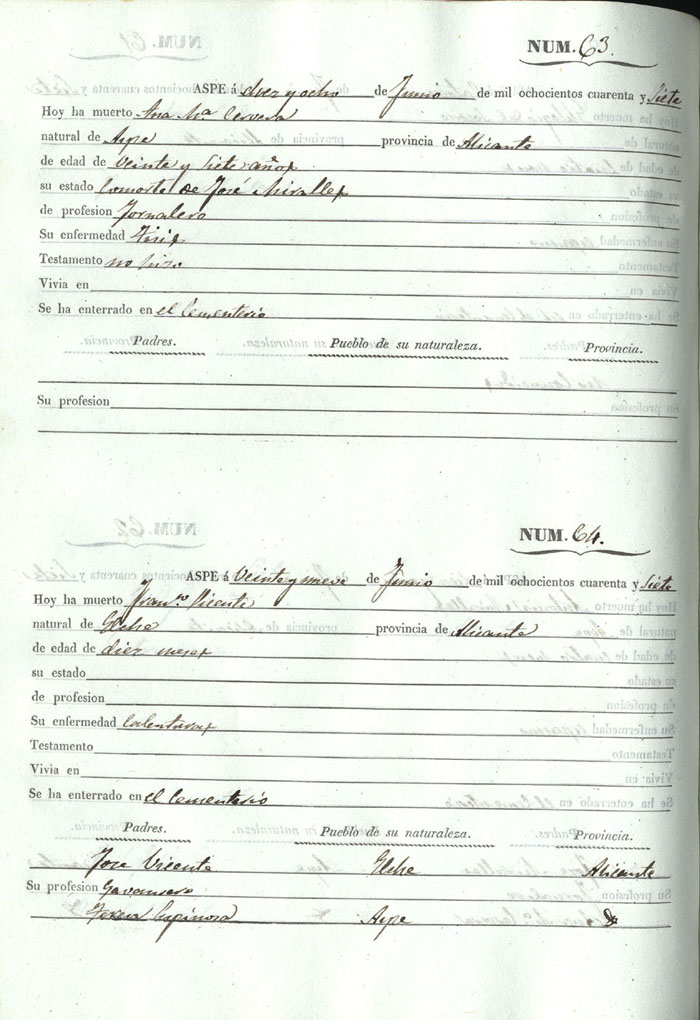 NUM. 63.
ASPE á diez y ocho de Junio de mil ochocientos cuarenta y Siete
Hoy ha muerto Ana Ma Cervera
natural de Aspe provincia de Alicante
de edad de Veinte y Siete años
su estado Consorte de José Miralles
de profesion Jornalero
Su enfermedad Tisis
Testamento no hizo
Vivia en
Se ha enterrado en el Cementerio
Padres. Pueblo de su naturaleza. Provincia.
Su profesion
NUM. 64.
ASPE á Veinte y nueve de Junio de mil ochocientos cuarenta y Siete
Hoy ha muerto Franco Vicente
natural de Elche provincia de Alicante
de edad de diez meses
su estado
de profesion
Su enfermedad Calenturas
Testamento
Vivia en
Se ha enterrado en el Cementerio
Padres. Pueblo de su naturaleza. Provincia.
Jose Vicente Elche Alicante
Su profesion
Espinosa Aspe